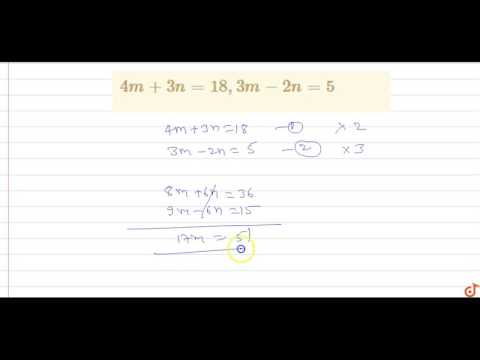 4m + 3n = 18, 3m − 2n = 5
4m+3n=18 —① ×2
3m−2n=5 —② ×3
8m+6n=36
9m−6n=15
17m = 51